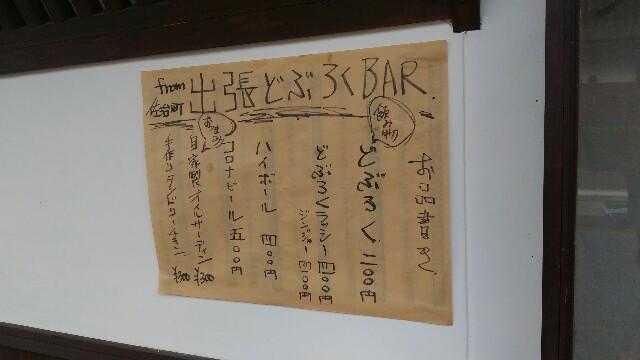 from 佐治町
出張どぶろくBAR.
お品書き
飲み物
どぶろく 二〇〇円
どぶろくラッシー 四〇〇円
ジンジャー 四〇〇円
ハイボール 四〇〇円
コロナビール 五〇〇円
おつまみ
自家製オイルサーディン ¥300
手作りタンドリーチキン ¥300